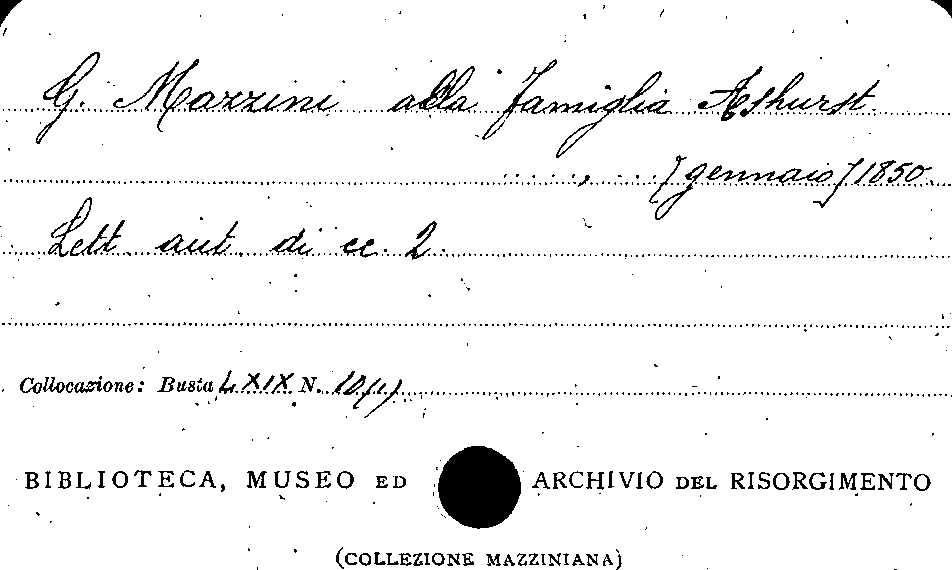 G. Mazzini alla famiglia Ashurst
......, ... [gennaio] 1850.
Lett. aut. di cc. 2.
Collocazione: Busta LXIX N. 10(1)
BIBLIOTECA, MUSEO ED ARCHIVIO DEL RISORGIMENTO
(COLLEZIONE MAZZINIANA)